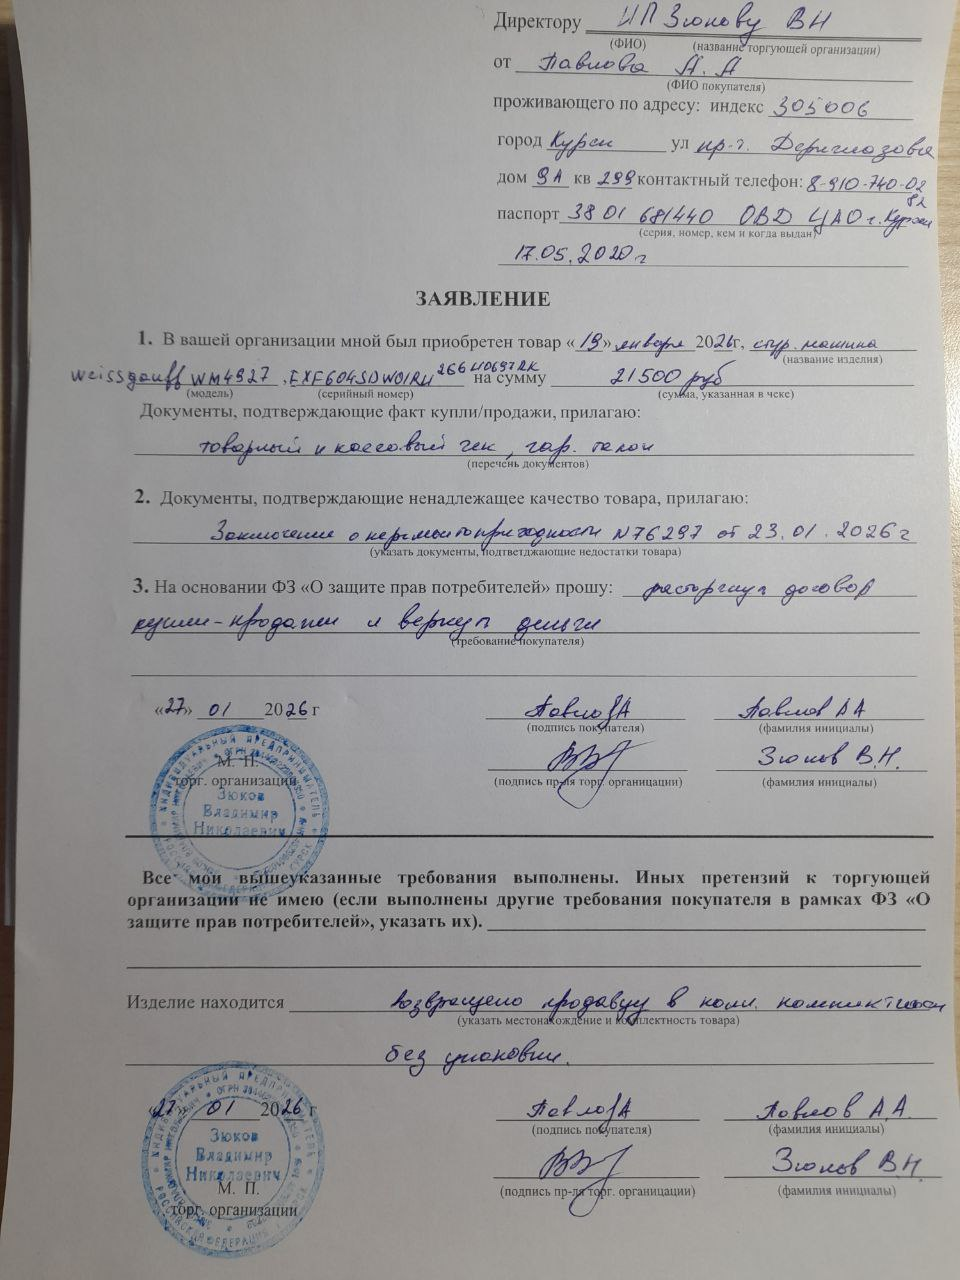 Директору ИП Зюкову ВН
(ФИО) (название торгующей организации)
от Павлова А. А
(ФИО покупателя)
проживающего по адресу: индекс 305006
город Курск ул пр-т. Дериглазова
дом 9А кв 299 контактный телефон: 8-910-740-02
82
паспорт 38 01 681440 ОВД ЦАО г. Курска
(серия, номер, кем и когда выдан)
17.05.2020 г
ЗАЯВЛЕНИЕ
1. В вашей организации мной был приобретен товар «19» января 2026г, стир. машина
(название изделия)
Weissgauff WM4927, на сумму 21500 руб
(модель) (серийный номер) (сумма, указанная в чеке)
Документы, подтверждающие факт купли/продажи, прилагаю:
товарный и кассовый чек, гар. талон
(перечень документов)
2. Документы, подтверждающие ненадлежащее качество товара, прилагаю:
Заключение о неремонтопригодности N76297 от 23.01.2026 г
(указать документы, подтветджающие недостатки товара)
3. На основании ФЗ «О защите прав потребителей» прошу: расторгнуть договор
купли-продажи и вернуть деньги
(требование покупателя)
«27» 01 2026 г Павлов АА
(подпись покупателя) (фамилия инициалы)
М. П. Зюков В.Н.
торг. организации (подпись пр-ля торг. органицации) (фамилия инициалы)
ИНДИВИДУАЛЬНЫЙ ПРЕДПРИНИМАТЕЛЬ
Зюков
Владимир
Николаевич
Все мои вышеуказанные требования выполнены. Иных претензий к торгующей
организации не имею (если выполнены другие требования покупателя в рамках ФЗ «О
защите прав потребителей», указать их).
Изделие находится возвращено продавцу в полн. комплектности
(указать местонахождение и комплектность товара)
без упаковки.
«27» 01 2026 г Павлов А.А.
(подпись покупателя) (фамилия инициалы)
Зюков В.Н.
(подпись пр-ля торг. органицации) (фамилия инициалы)
ИНДИВИДУАЛЬНЫЙ ПРЕДПРИНИМАТЕЛЬ
Зюков
Владимир
Николаевич
М. П.
торг. организации